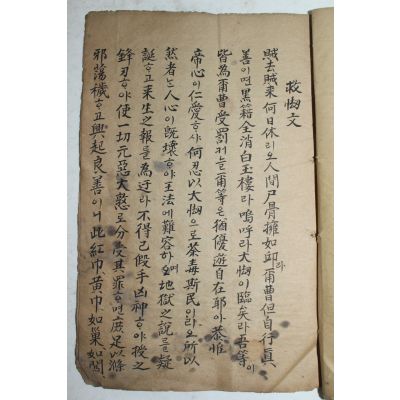 救劫文
賊去賊来何日休리오人間尸骨擁如邱라爾曹但自行眞
善이면黑籍全消白玉樓라嗚呼라大劫이臨矣라吾等이
皆為爾曹受罰커늘爾等은猶優遊自在耶아恭惟
帝心이仁愛하사何忍以大劫으로荼毒斯民이리오所以
然者는人心이旣壞하야王法에難容하며地獄之說를疑
誕하고来生之報를為迂라不得已假手凶神하야授之
鋒刃하야使一切元惡大憝로分受其罪하면庶足以滌
邪蕩穢하고興起良善이니此紅巾黃巾如巢如闖